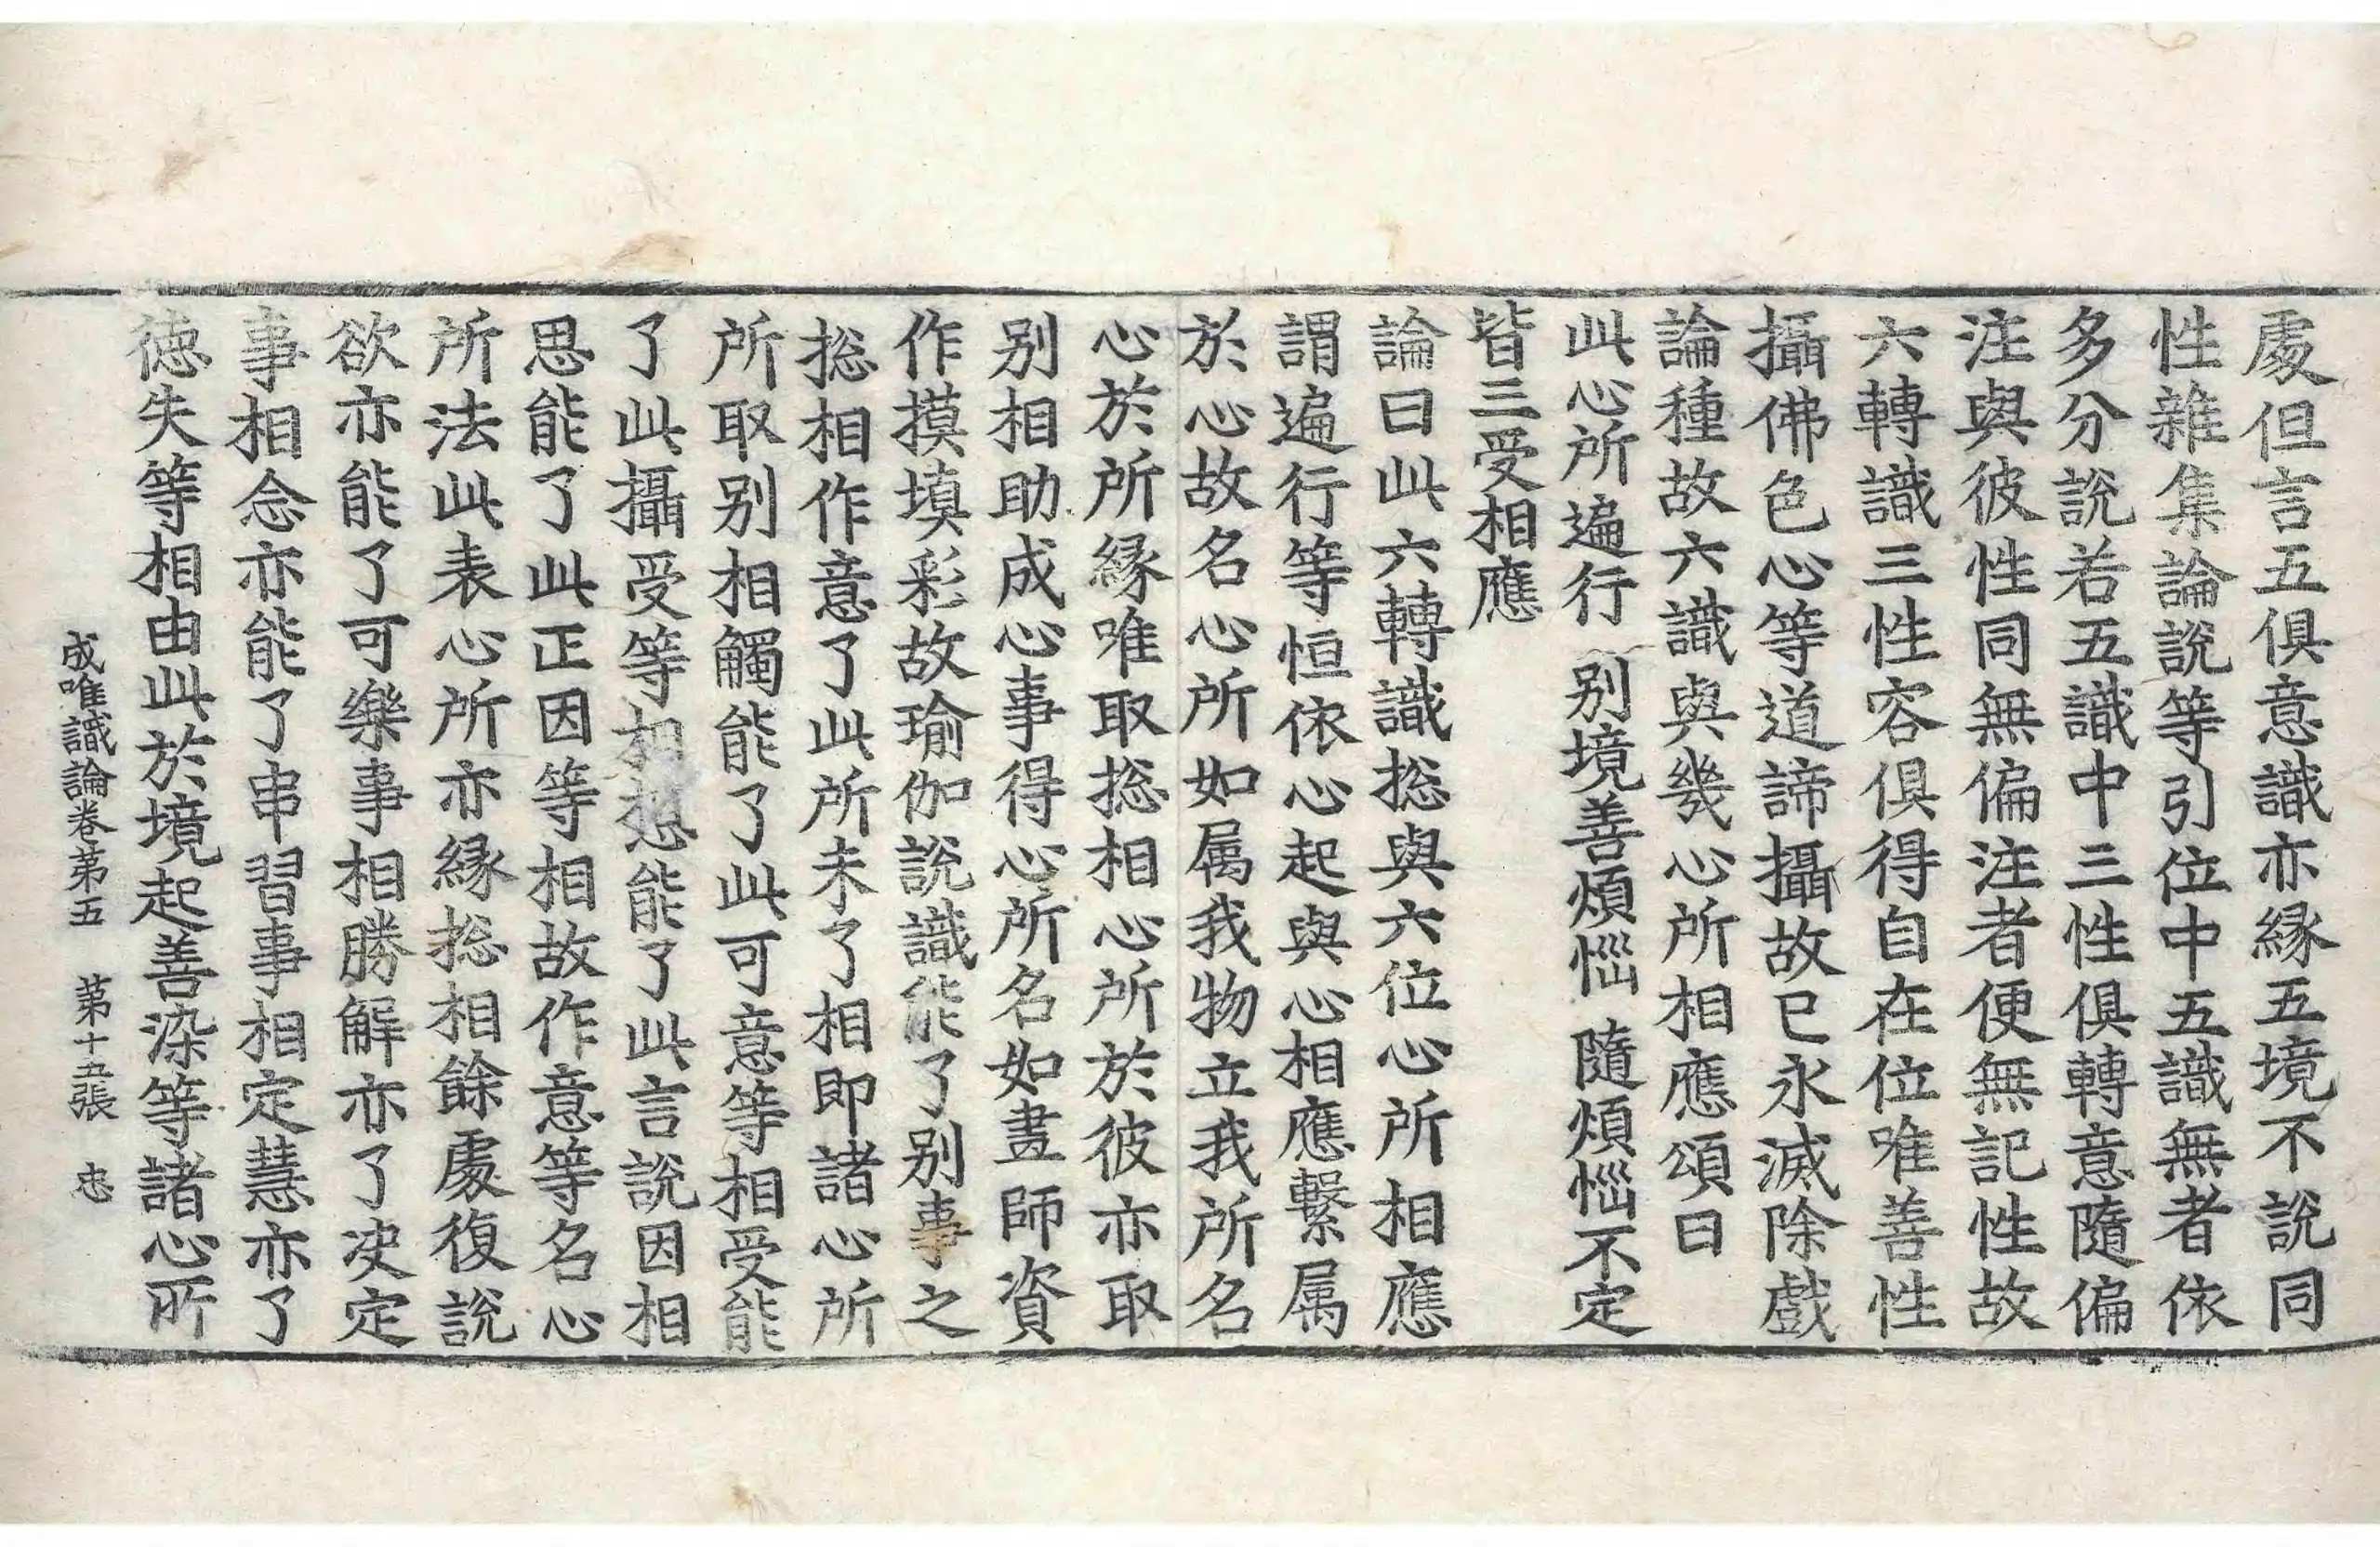 處但言五俱意識亦緣五境不說同
性雜集論說等引位中五識無者依
多分說若五識中三性俱轉意隨偏
注與彼性同無偏注者便無記性故
六轉識三性容俱得自在位唯善性
攝佛色心等道諦攝故已永滅除戲
論種故六識與幾心所相應頌曰
此心所遍行 别境善煩惱 隨煩惱不定
皆三受相應
論曰此六轉識捴與六位心所相應
謂遍行等恒依心起與心相應繫属
於心故名心所如属我物立我所名
心於所緣唯取捴相心所於彼亦取
别相助成心事得心所名如畫師資
作摸填彩故瑜伽說識能了别事之
捴相作意了此所未了相即諸心所
所取别相觸能了此可意等相受能
了此攝受等相想能了此言說因相
思能了此正因等相故作意等名心
所法此表心所亦緣捴相餘處復說
欲亦能了可樂事相勝解亦了决定
事相念亦能了串習事相定慧亦了
德失等相由此於境起善染等諸心所
成唯識論卷第五 第十五張 忠